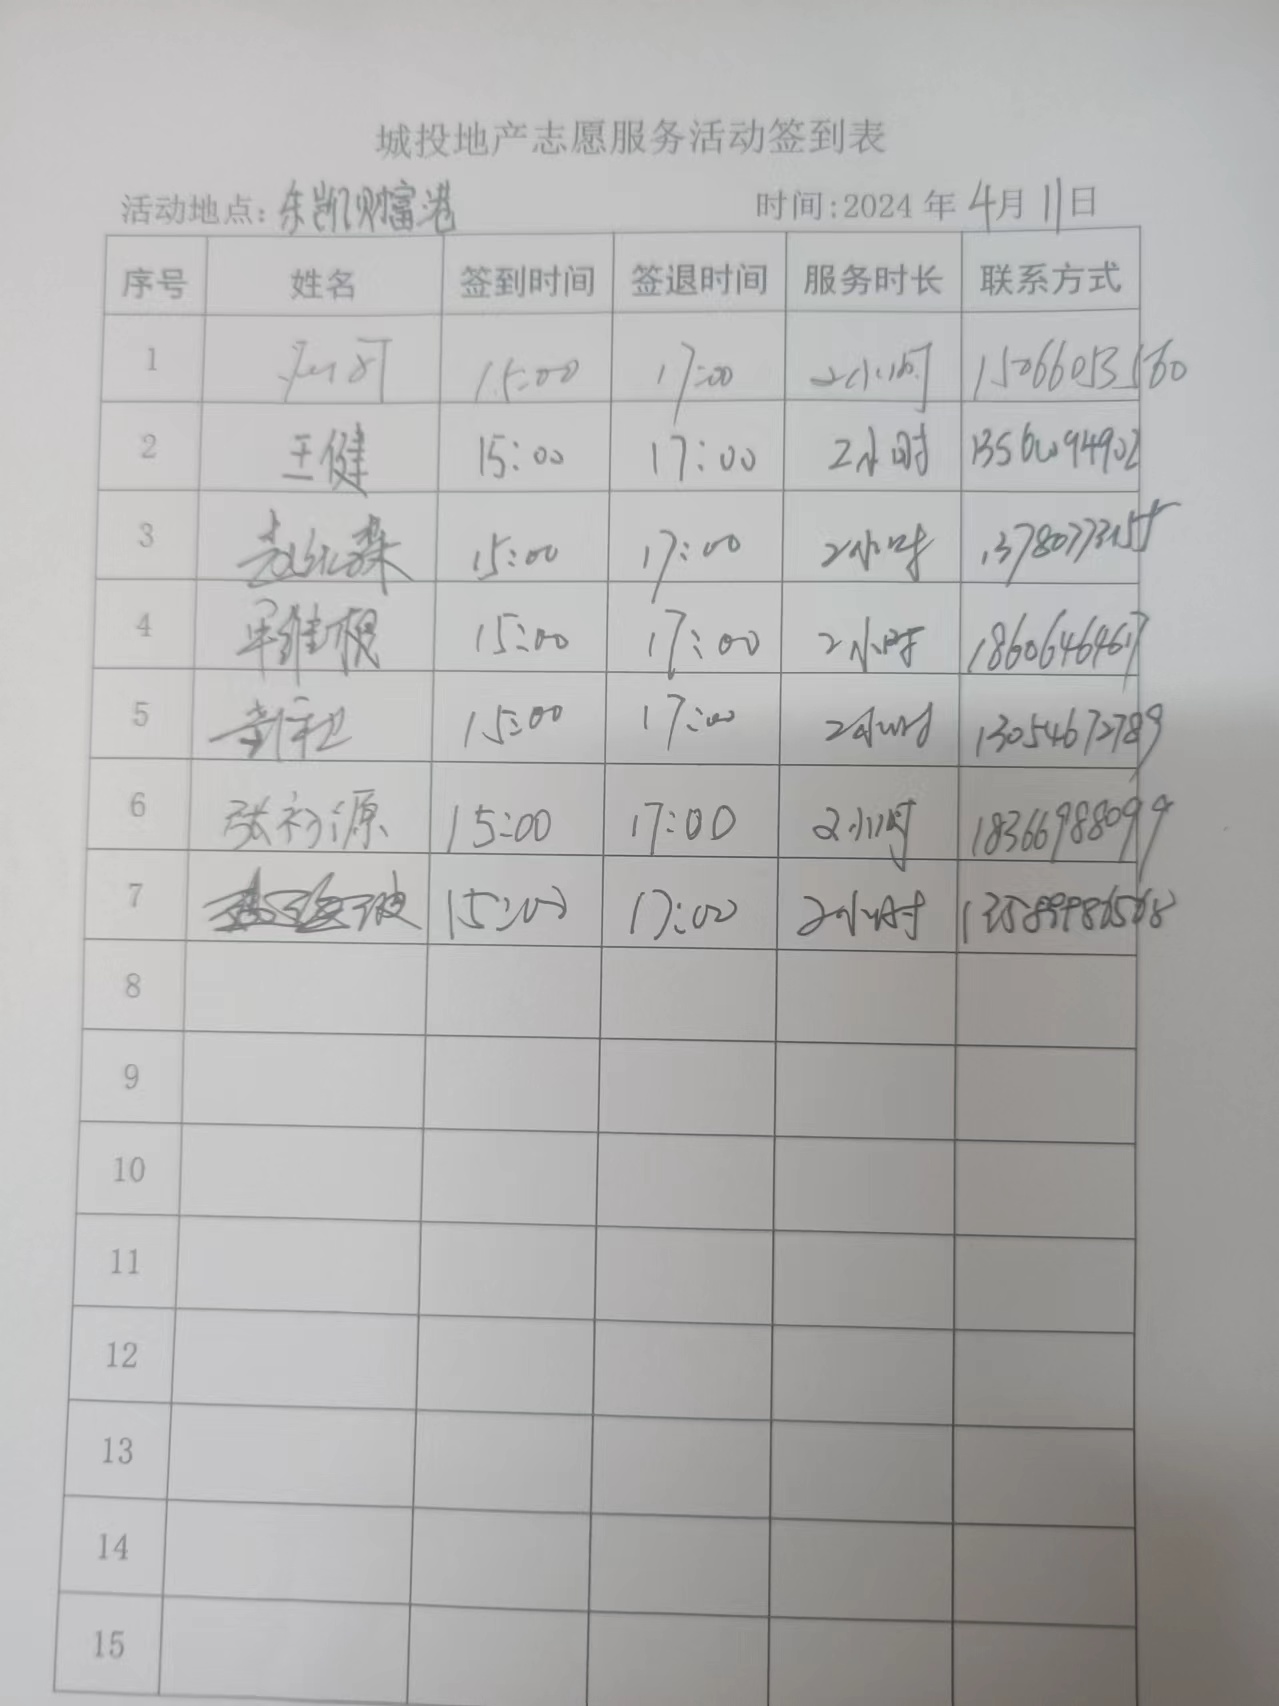 城投地产志愿服务活动签到表
活动地点：东凯财富港 时间：2024 年 4月 11日
序号 姓名 签到时间 签退时间 服务时长 联系方式
1 15:00 17:00 2小时
2 王健 15:00 17:00 2小时
3 15:00 17:00 2小时
4 15:00 17:00 2小时 18606464617
5 15:00 17:00 2小时 13054672789
6 张初源 15:00 17:00 2小时 18366988099
7 15:00 17:00 2小时
8
9
10
11
12
13
14
15